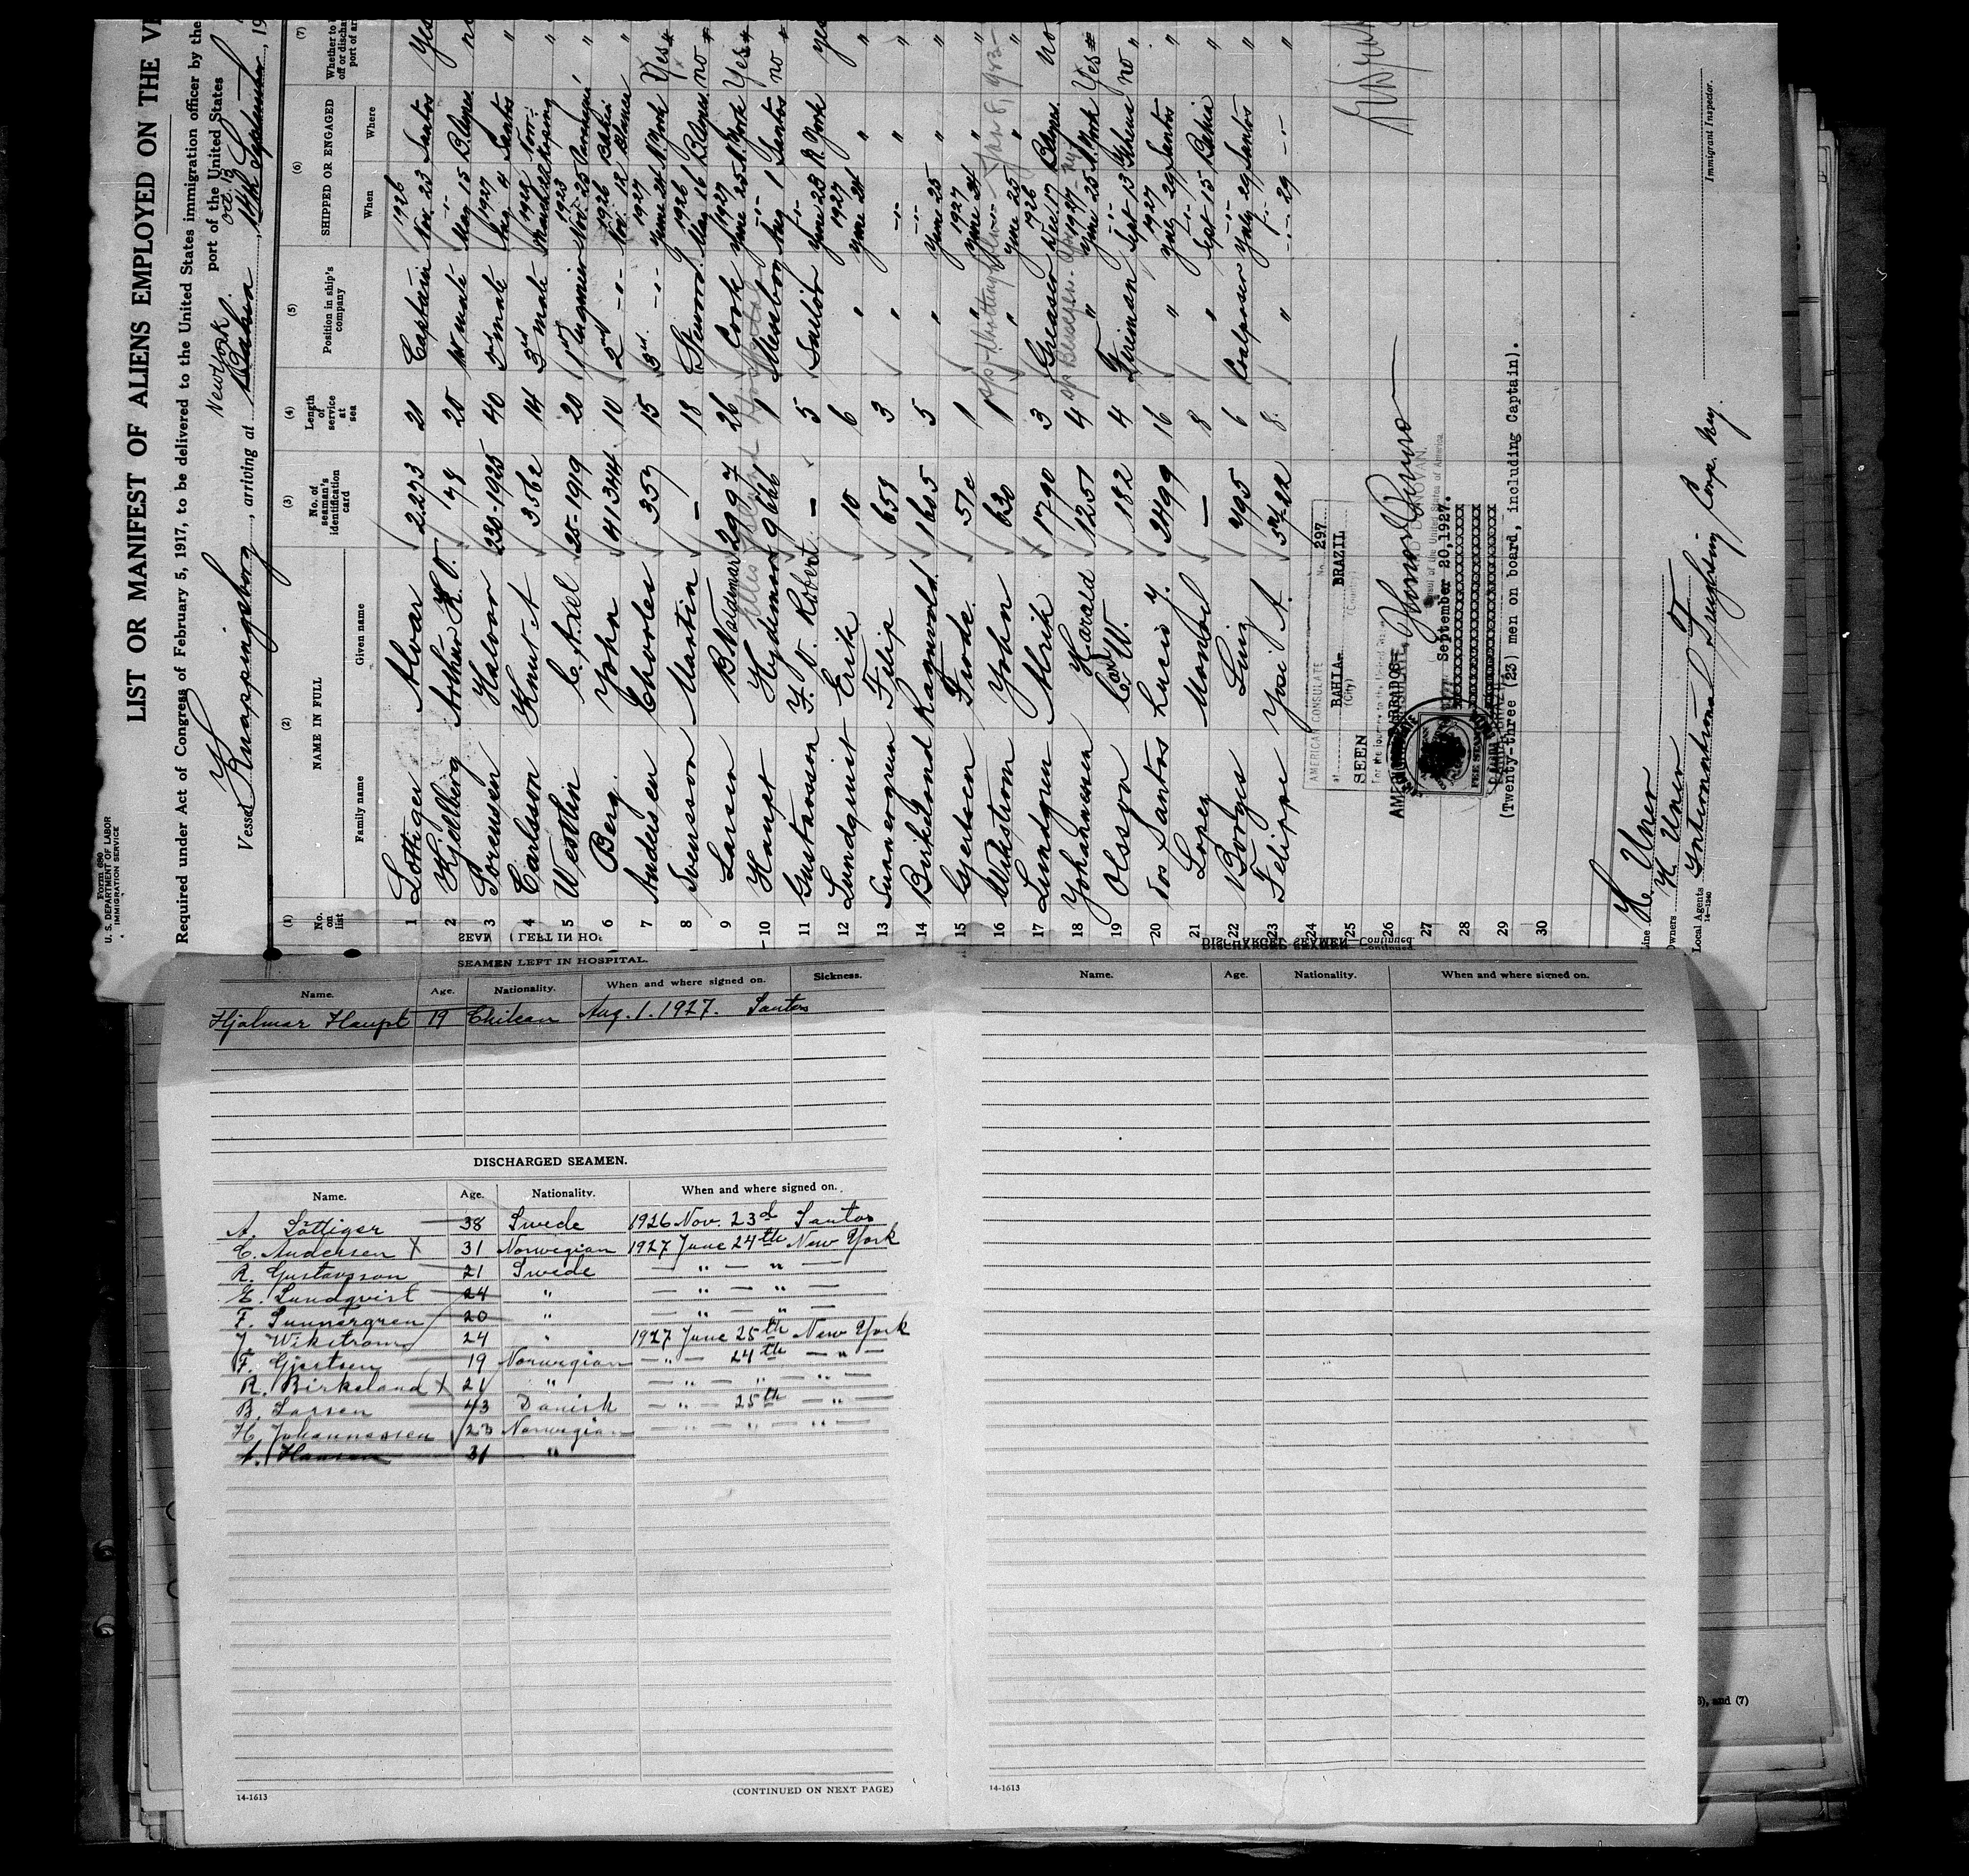 Form 680
U. S. DEPARTMENT OF LABOR
IMMIGRATION SERVICE
LIST OR MANIFEST OF ALIENS EMPLOYED ON THE
Required under Act of Congress of February 5, 1917, to be delivered to the United States immigration officer by the
port of the United States
New York Oct. 13
Vessel Knappingsborg, arriving at Bahia, September, 19
(1) (2) (3) (4) (5) (6) (7)
No. on list
NAME IN FULL
Family name Given name
No. of seaman's identification card
Length of service at sea
Position in ship's company
SHIPPED OR ENGAGED
When Where
1 Löttiger Alvar 2223 21 Captain 1926 Nov. 23 Santos Yes
2 Kjellberg Arthur K.O. 178 20 1st mate May 15 B.Aires no
3 Sorensen Halvor 230-1925 40 2nd mate 1927 Aug 4 Santos "
4 Carlsson Knut A 3562 14 3rd mate "
5 Westlin C. Axel 25-1919 20 1st Engineer 1923 Nov. 25 "
6 Berg John 41344 10 2nd 1926 Nov. 12 "
7 Andersen Charles 357 15 3rd 1927 June 24 N.York Yes
8 Svensson Martin - 18 Steward 1926 May 16 B.Aires no
9 Larsen B Valdemar 2997 26 Cook 1927 June 25 N.York Yes
10 Haupt Hjalmar 9661 1 Messboy Aug 1 Santos no
11 Gustavsson F. V. Robert - 5 Sailor June 23 N York yes
12 Lundquist Erik 10 6 " 1927 June 24 " "
13 Sunnergren Filip 658 3 " " "
14 Birkeland Ragnvald 1605 5 " June 25 " "
15 Gjertsen Frode 51c 1 " 1927 June 24 " "
16 Wikstrom John 630 1 " June 25 " "
17 Lindgren Alrik 1790 3 Greaser 1926 Dec 17 B.Aires no
18 Johannesen Harald 1251 4 " 1927 June 25 N.York Yes
19 Olsson Carl W. 182 4 Fireman Sept 13 no
20 dos Santos Lucio J. 2499 16 " 1927 July 29 Santos "
21 Lopez Mandol — 8 " Sept 15 Bahia "
22 Borges Luiz 495 6 Coalpasser July 29 Santos "
23 Felippe José A. 8 " 29 "
24
25
26
27
28
29
30
AMERICAN CONSULATE No. 297
at BAHIA BRAZIL
(City) (Country)
SEEN
For the journey to the United States
Consul of the United States of America
September 20, 1927.
FEE STAMP
(Twenty-three (23) men on board, including Captain).
Owners
Local Agents International Freighting Corp. N.Y.
14-1240
Immigrant Inspector.
SEAMEN LEFT IN HOSPITAL.
Name. Age. Nationality. When and where signed on. Sickness.
Hjalmar Haupt 19 Chilean Aug. 1. 1927. Santos
DISCHARGED SEAMEN.
Name. Age. Nationality. When and where signed on.
A. Löttiger 38 Swede 1926 Nov. 23d Santos
C. Andersen X 31 Norwegian 1927 June 24th New York
R. Gustavsson 21 Swede — " — " —
E. Lundqvist 24 " — " — " —
F. Sunnergren 20 " — " — " —
J. Wikstrom 24 " 1927 June 25th New York
F. Gjertsen 19 Norwegian — " — 24th — " —
R. Birkeland X 21 " — " — " — " —
B. Larsen 43 Danish — " — 25th — " —
H. Johannessen 23 Norwegian — " — " — " —
A. Hansen 31 "
14-1613
(CONTINUED ON NEXT PAGE)
DISCHARGED SEAMEN—Continued
Name. Age. Nationality. When and where signed on.
14-1613
, and (7)